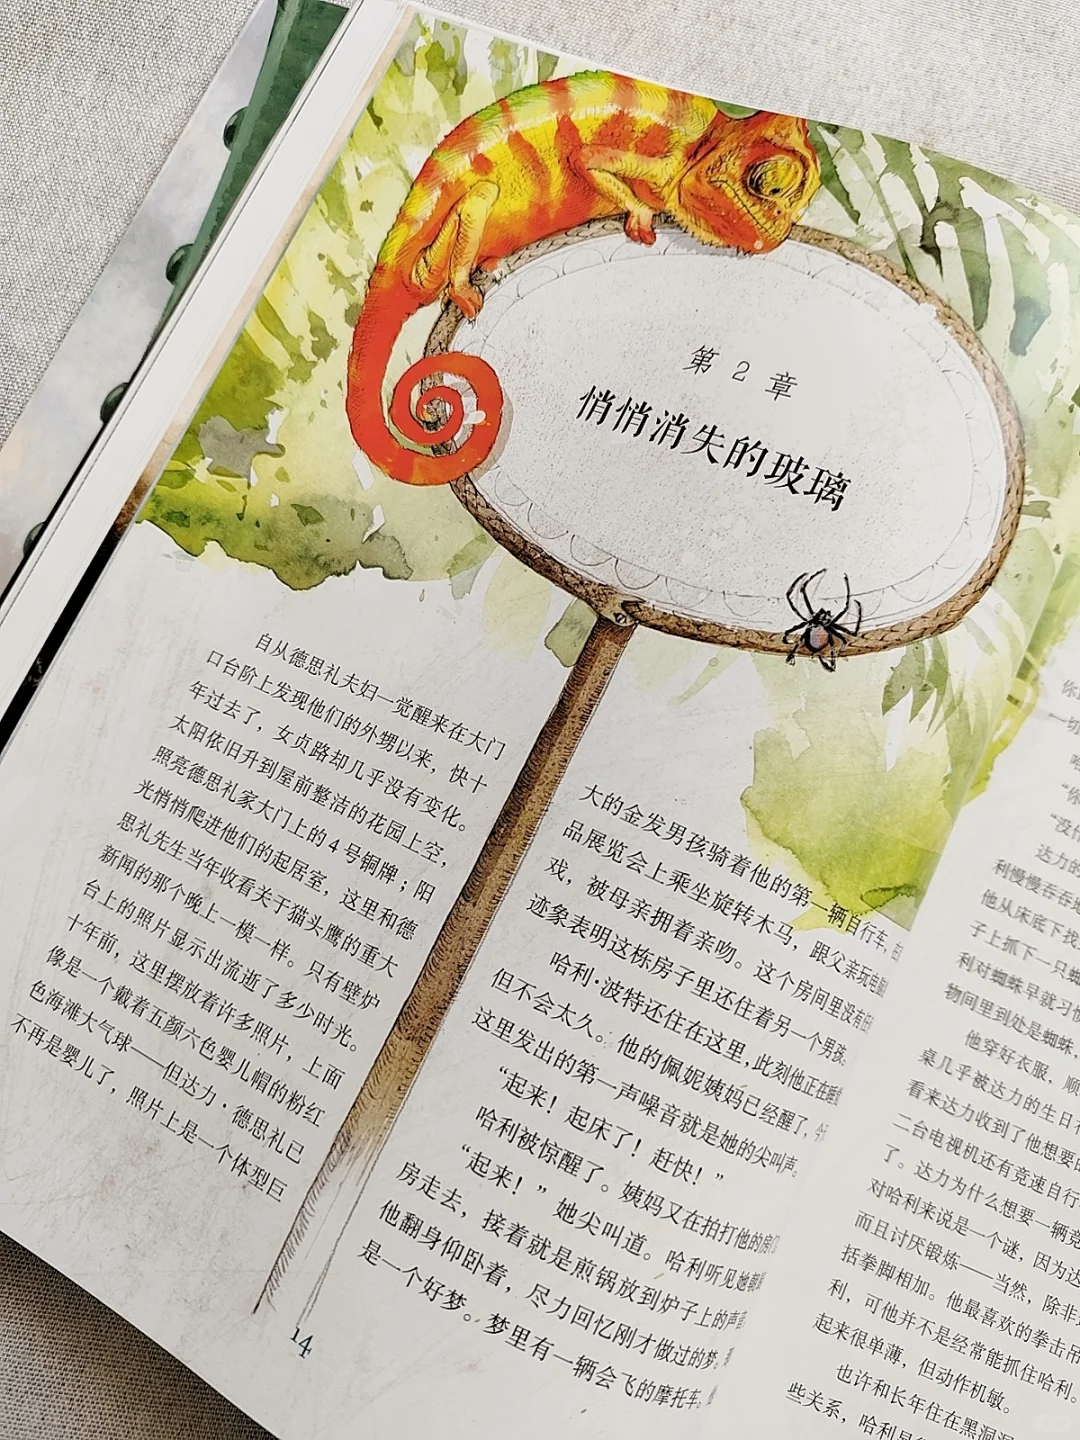 第2章
悄悄消失的玻璃
自从德思礼夫妇一觉醒来在大门
口台阶上发现他们的外甥以来，快十
年过去了，女贞路却几乎没有变化。
太阳依旧升到屋前整洁的花园上空，
照亮德思礼家大门上的4号铜牌；阳
光悄悄爬进他们的起居室，这里和德
思礼先生当年收看关于猫头鹰的重大
新闻的那个晚上一模一样。只有壁炉
台上的照片显示出流逝了多少时光。
十年前，这里摆放着许多照片，上面
像是一个戴着五颜六色婴儿帽的粉红
色海滩大气球——但达力·德思礼已
不再是婴儿了，照片上是一个体型巨
大的金发男孩骑着他的第一辆自行车，在
品展览会上乘坐旋转木马，跟父亲玩电脑
戏，被母亲拥着亲吻。这个房间里没有任
迹象表明这栋房子里还住着另一个男孩。
哈利·波特还住在这里，此刻他正在睡
但不会太久。他的佩妮姨妈已经醒了，今
这里发出的第一声噪音就是她的尖叫声。
“起来！起床了！赶快！”
哈利被惊醒了。姨妈又在拍打他的房门
“起来！”她尖叫道。哈利听见她朝
房走去，接着就是煎锅放到炉子上的声音
他翻身仰卧着，尽力回忆刚才做过的梦。
是一个好梦。梦里有一辆会飞的摩托车。
14
你
一切
“你
“没什
达力的
利慢慢吞吞
他从床底下找
子上抓下一只蜘
利对蜘蛛早就习惯
物间里到处是蜘蛛，
他穿好衣服，顺
桌几乎被达力的生日礼
看来达力收到了他想要的
二台电视机还有竞速自行
了。达力为什么想要一辆竞
对哈利来说是一个谜，因为达
而且讨厌锻炼——当然，除非
括拳脚相加。他最喜欢的拳击吊
利，可他并不是经常能抓住哈利。
起来很单薄，但动作机敏。
也许和长年住在黑洞洞
些关系，哈利